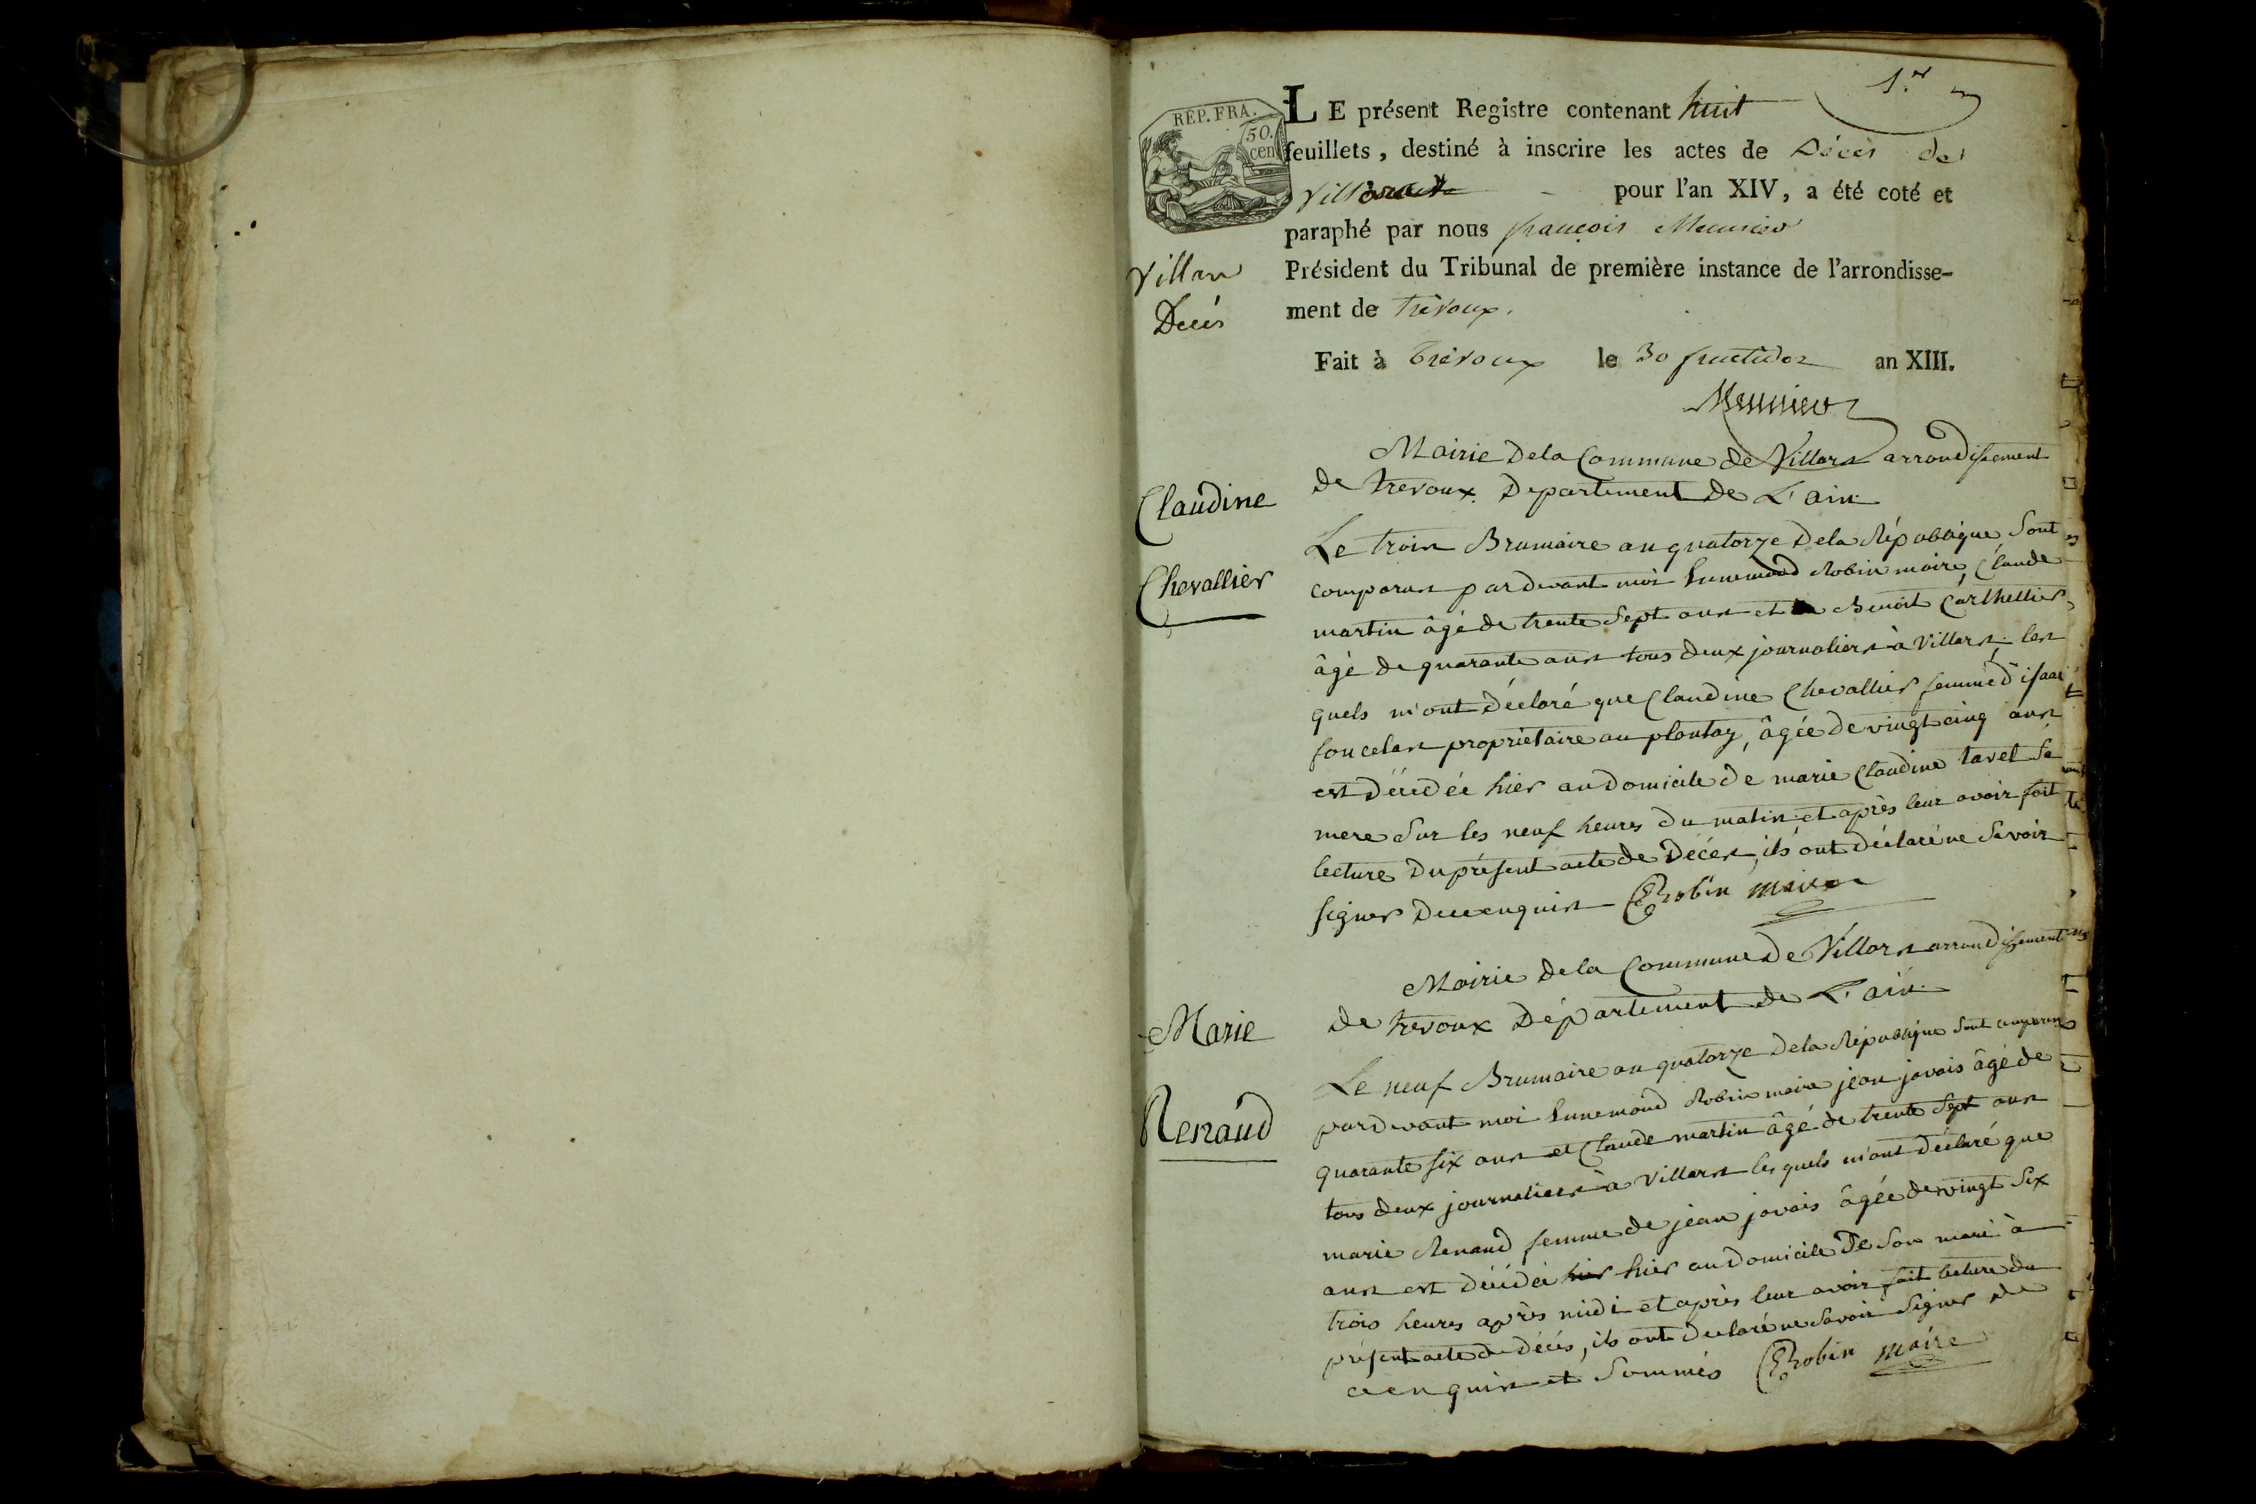 1.er
REP. FRA.
50.
cen
LE présent Registre contenant huit
feuillets, destiné à inscrire les actes de Décès de
Villars pour l'an XIV, a été coté et
paraphé par nous françois Meunier
Président du Tribunal de première instance de l'arrondisse-
ment de Trévoux.
Fait à Trévoux le 30 fructidor an XIII.
Meunier
Villars
Décès
Claudine
Chevallier
Mairie de la Commune de Villars arrondissement
de trevoux Departement de L'ain
Le trois Brumaire an quatorze de la République sont
comparus pardevant moi Ennemond Robin maire, Claude
martin âgé de trente sept ans et Benoît Carthellier
âgé de quarante ans tous deux journaliers à Villars, les
quels m'ont déclaré que Claudine Chevallier femme d'isaac
foncelas propriétaire au plantay, âgée de vingt cinq ans
est décédée hier au domicile de marie Claudine tavel sa
mere sur les neuf heures du matin et après leur avoir fait
lecture du présent acte de Décès, ils ont déclaré ne savoir
signer de ce enquis ERobin maire
Marie
Renaud
Mairie de la Commune de Villars arrondissement
de trevoux Département de L'ain
Le neuf Brumaire an quatorze de la République sont comparus
pardevant moi Ennemond Robin maire jean javais âgé de
quarante six ans et Claude martin âgé de trente sept ans
tous deux journaliers à Villars les quels m'ont déclaré que
marie Renaud femme de jean javais âgée de vingt six
ans est décédée hier hier au domicile de son mari à
trois heures après midi et après leur avoir fait lecture du
présent acte de décès, ils ont declaré ne savoir signer de
ce enquis et sommés ERobin maire